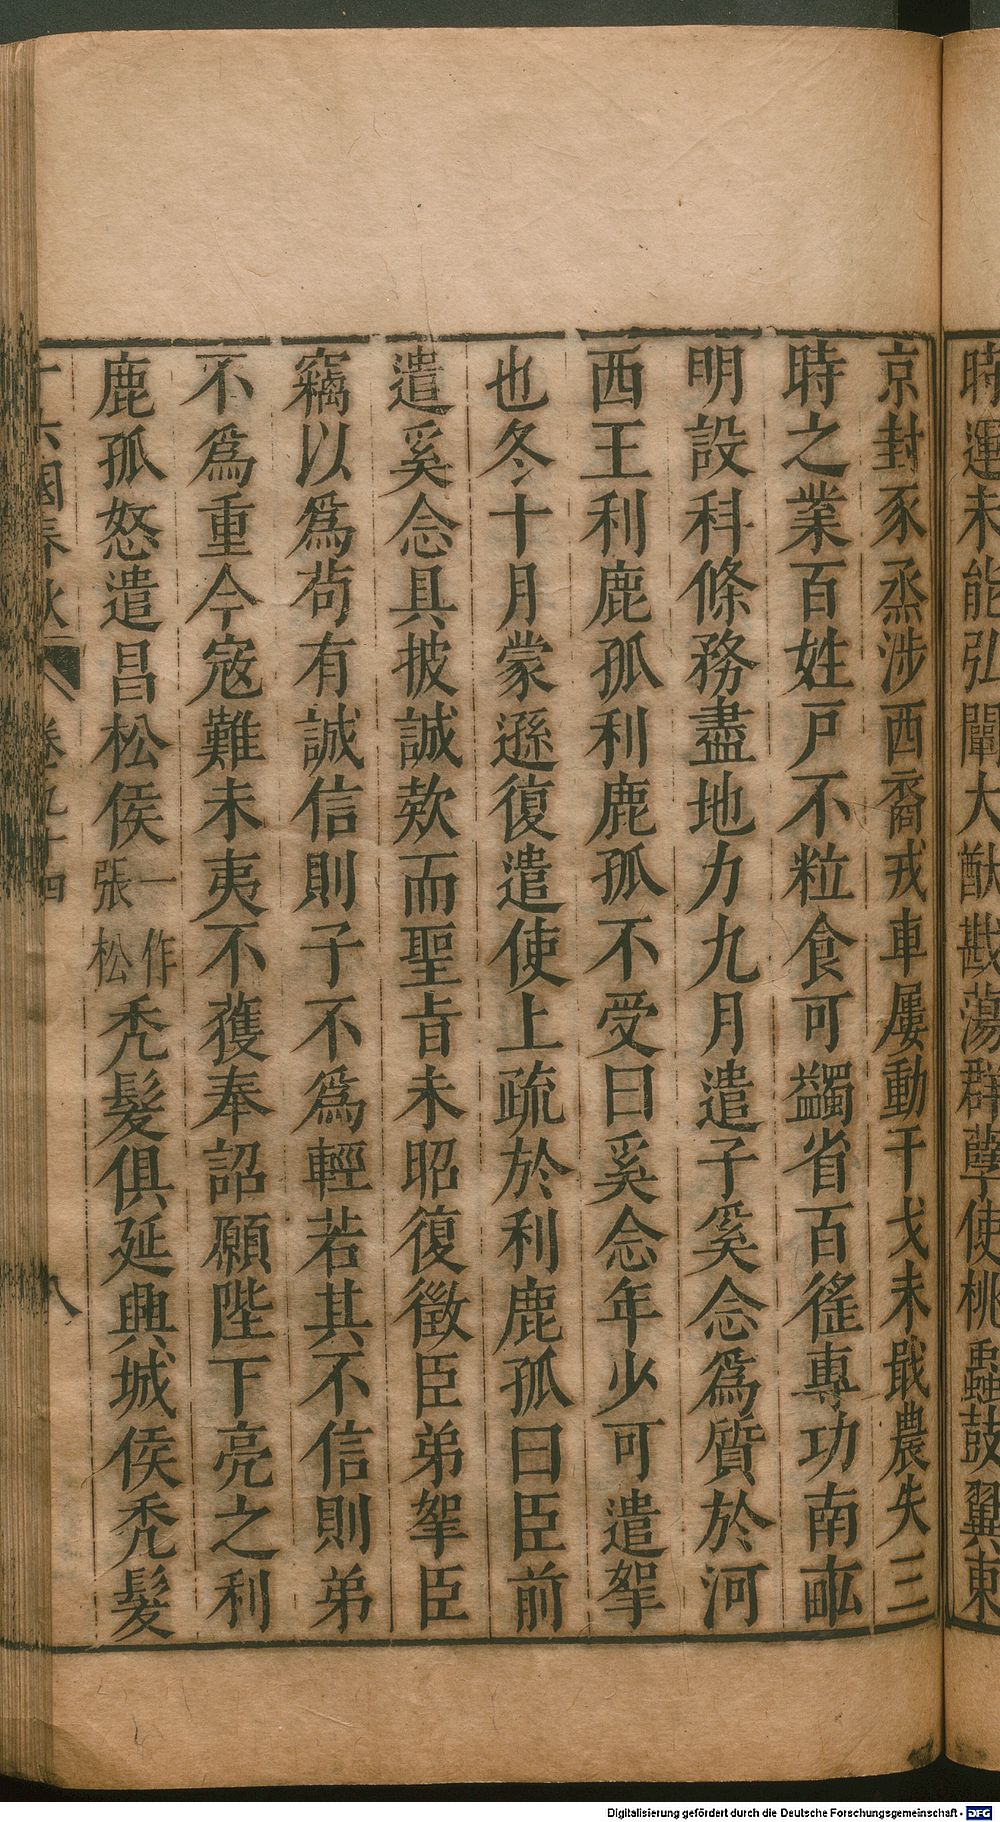 時運未能弘闡大猷戡蕩群孽使桃蟲鼓翼東
京封豕烝涉西裔戎車屢動干戈未戢農失三
時之業百姓戸不粒食可蠲省百徭專功南畝
明設科條務盡地力九月遣子奚念爲質於河
西王利鹿孤利鹿孤不受曰奚念年少可遣挐
也冬十月蒙遜復遣使上疏於利鹿孤曰臣前
遣奚念具披誠欵而聖旨未昭復徵臣弟挐臣
竊以爲苟有誠信則子不爲輕若其不信則弟
不爲重今寇難未夷不獲奉詔願陛下亮之利
鹿孤怒遣昌松侯一作張松禿髮俱延興城侯禿髮
十六國春秋 卷九十四 八
Digitalisierung gefördert durch die Deutsche Forschungsgemeinschaft - DFG